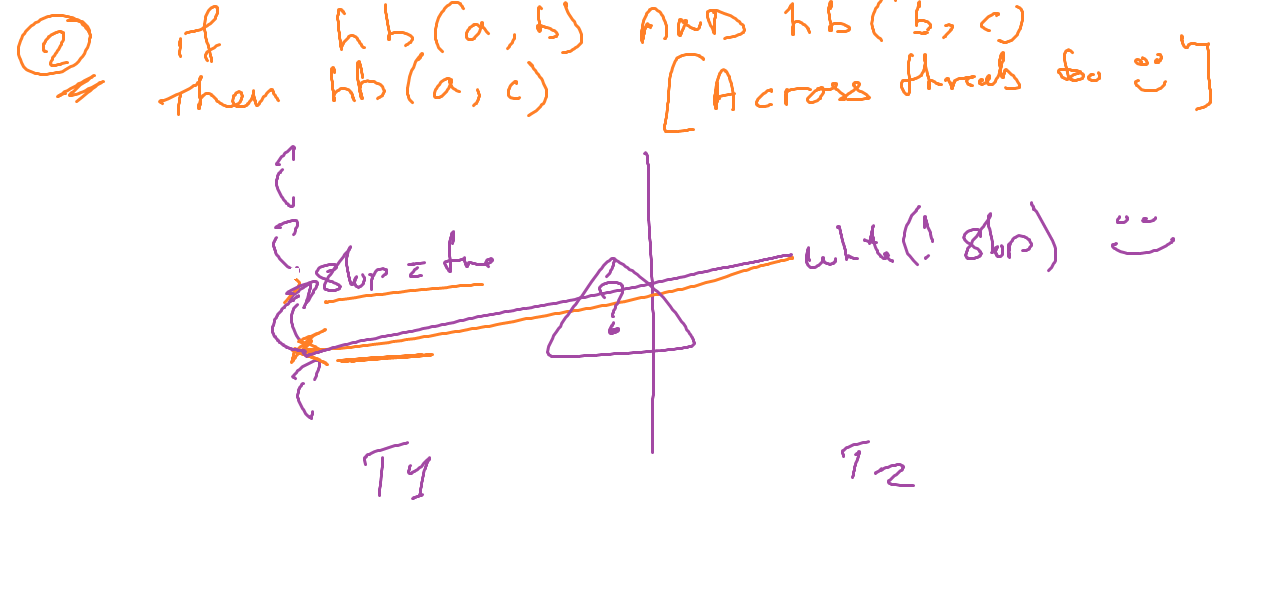 ② if hb(a, b) AND hb(b, c)
Then hb(a, c) [Across threads too ]
stop = true
while(! stop)
?
T1 T2